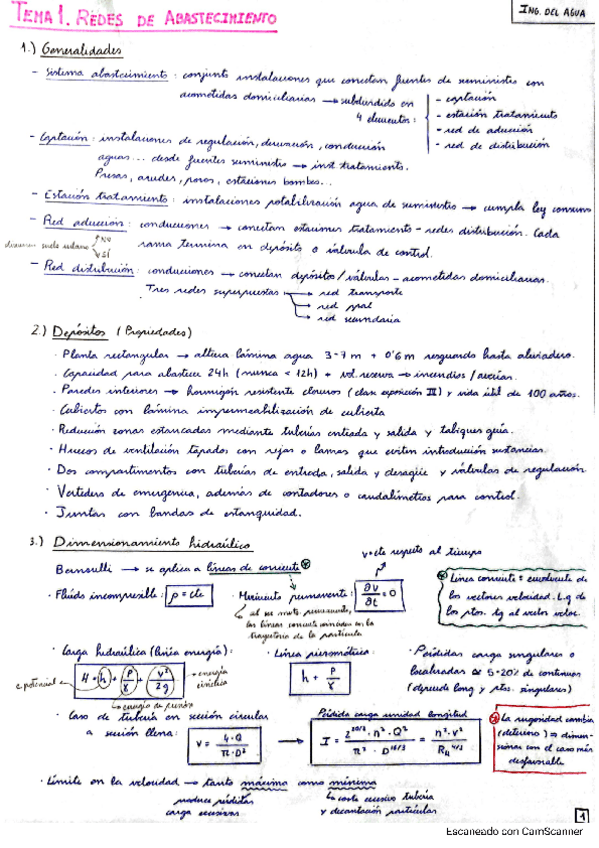 TEMA 1. REDES DE ABASTECIMIENTO
ING. DEL AGUA
1.) Generalidades
- Sistema abastecimiento: conjunto instalaciones que conectan fuentes de suministro con
acometidas domiciliarias → subdividido en
4 elementos:
- captación
- estación tratamiento
- red de aducción
- red de distribución
- Captación: instalaciones de regulación, derivación, conducción
aguas... desde fuentes suministro → inst tratamiento.
Presas, azudes, pozos, estaciones bombeo...
- Estación tratamiento: instalaciones potabilización agua de suministro → cumpla ley consumo
- Red aducción: conducciones → conectan estaciones tratamiento - redes distribución. Cada
rama termina en depósito o válvula de control.
discurren suelo urbano
NO
SÍ
- Red distribución: conducciones → conectan depósitos/válvulas - acometidas domiciliarias.
Tres redes superpuestas
→ red transporte
→ red ppal
→ red secundaria
2.) Depósitos (Propiedades)
· Planta rectangular → altura lámina agua 3-7 m + 0'6 m resguardo hasta aliviadero.
· Capacidad para abastecer 24h (nunca < 12h) + vol. reserva → incendios/averías.
· Paredes interiores → hormigón resistente cloruros (clase exposición IV) y vida útil de 100 años.
· Cubiertos con lámina impermeabilización de cubierta
· Reducción zonas estancadas mediante tuberías entrada y salida y tabiques guía.
· Huecos de ventilación tapados con rejas o lamas que eviten introducción sustancias.
· Dos compartimentos con tuberías de entrada, salida y desagüe y válvulas de regulación.
· Vertedero de emergencia, además de contadores o caudalímetros para control.
· Juntas con bandas de estanquidad.
3.) Dimensionamiento hidráulico
Bernoulli → se aplica a líneas de corriente
v=cte respecto al tiempo
· Fluido incompresible: ρ = cte
· Movimiento permanente: ∂v/∂t = 0
al ser mvto. permanente,
las líneas corriente coinciden con la
trayectoria de la partícula
Línea corriente = envolvente de
los vectores velocidad. L.g de
los ptos. tg al vector veloc.
· Carga hidráulica (línea energía):
h + P/γ + v²/2g
e. potencial
energía de presión
- energía
cinética
· Línea piezométrica:
h + P/γ
· Pérdidas carga singulares o
localizadas ≃ 5-20% de continuas
(depende long y ptos. singulares)
· Caso de tubería en sección circular
a sección llena:
V = 4·Q / π·D²
Pérdida carga unidad longitud
I = 2^(20/3)·n²·Q² / π²·D^(16/3) = n²·v² / R_H^(4/3)
La rugosidad cambia
(deterioro) ⇒ dimen-
sionar con el caso más
desfavorable
· Límite en la velocidad → tanto máxima como mínima
produce pérdidas
carga excesivas
↳ coste excesivo tubería
y decantación partículas
1
Escaneado con CamScanner